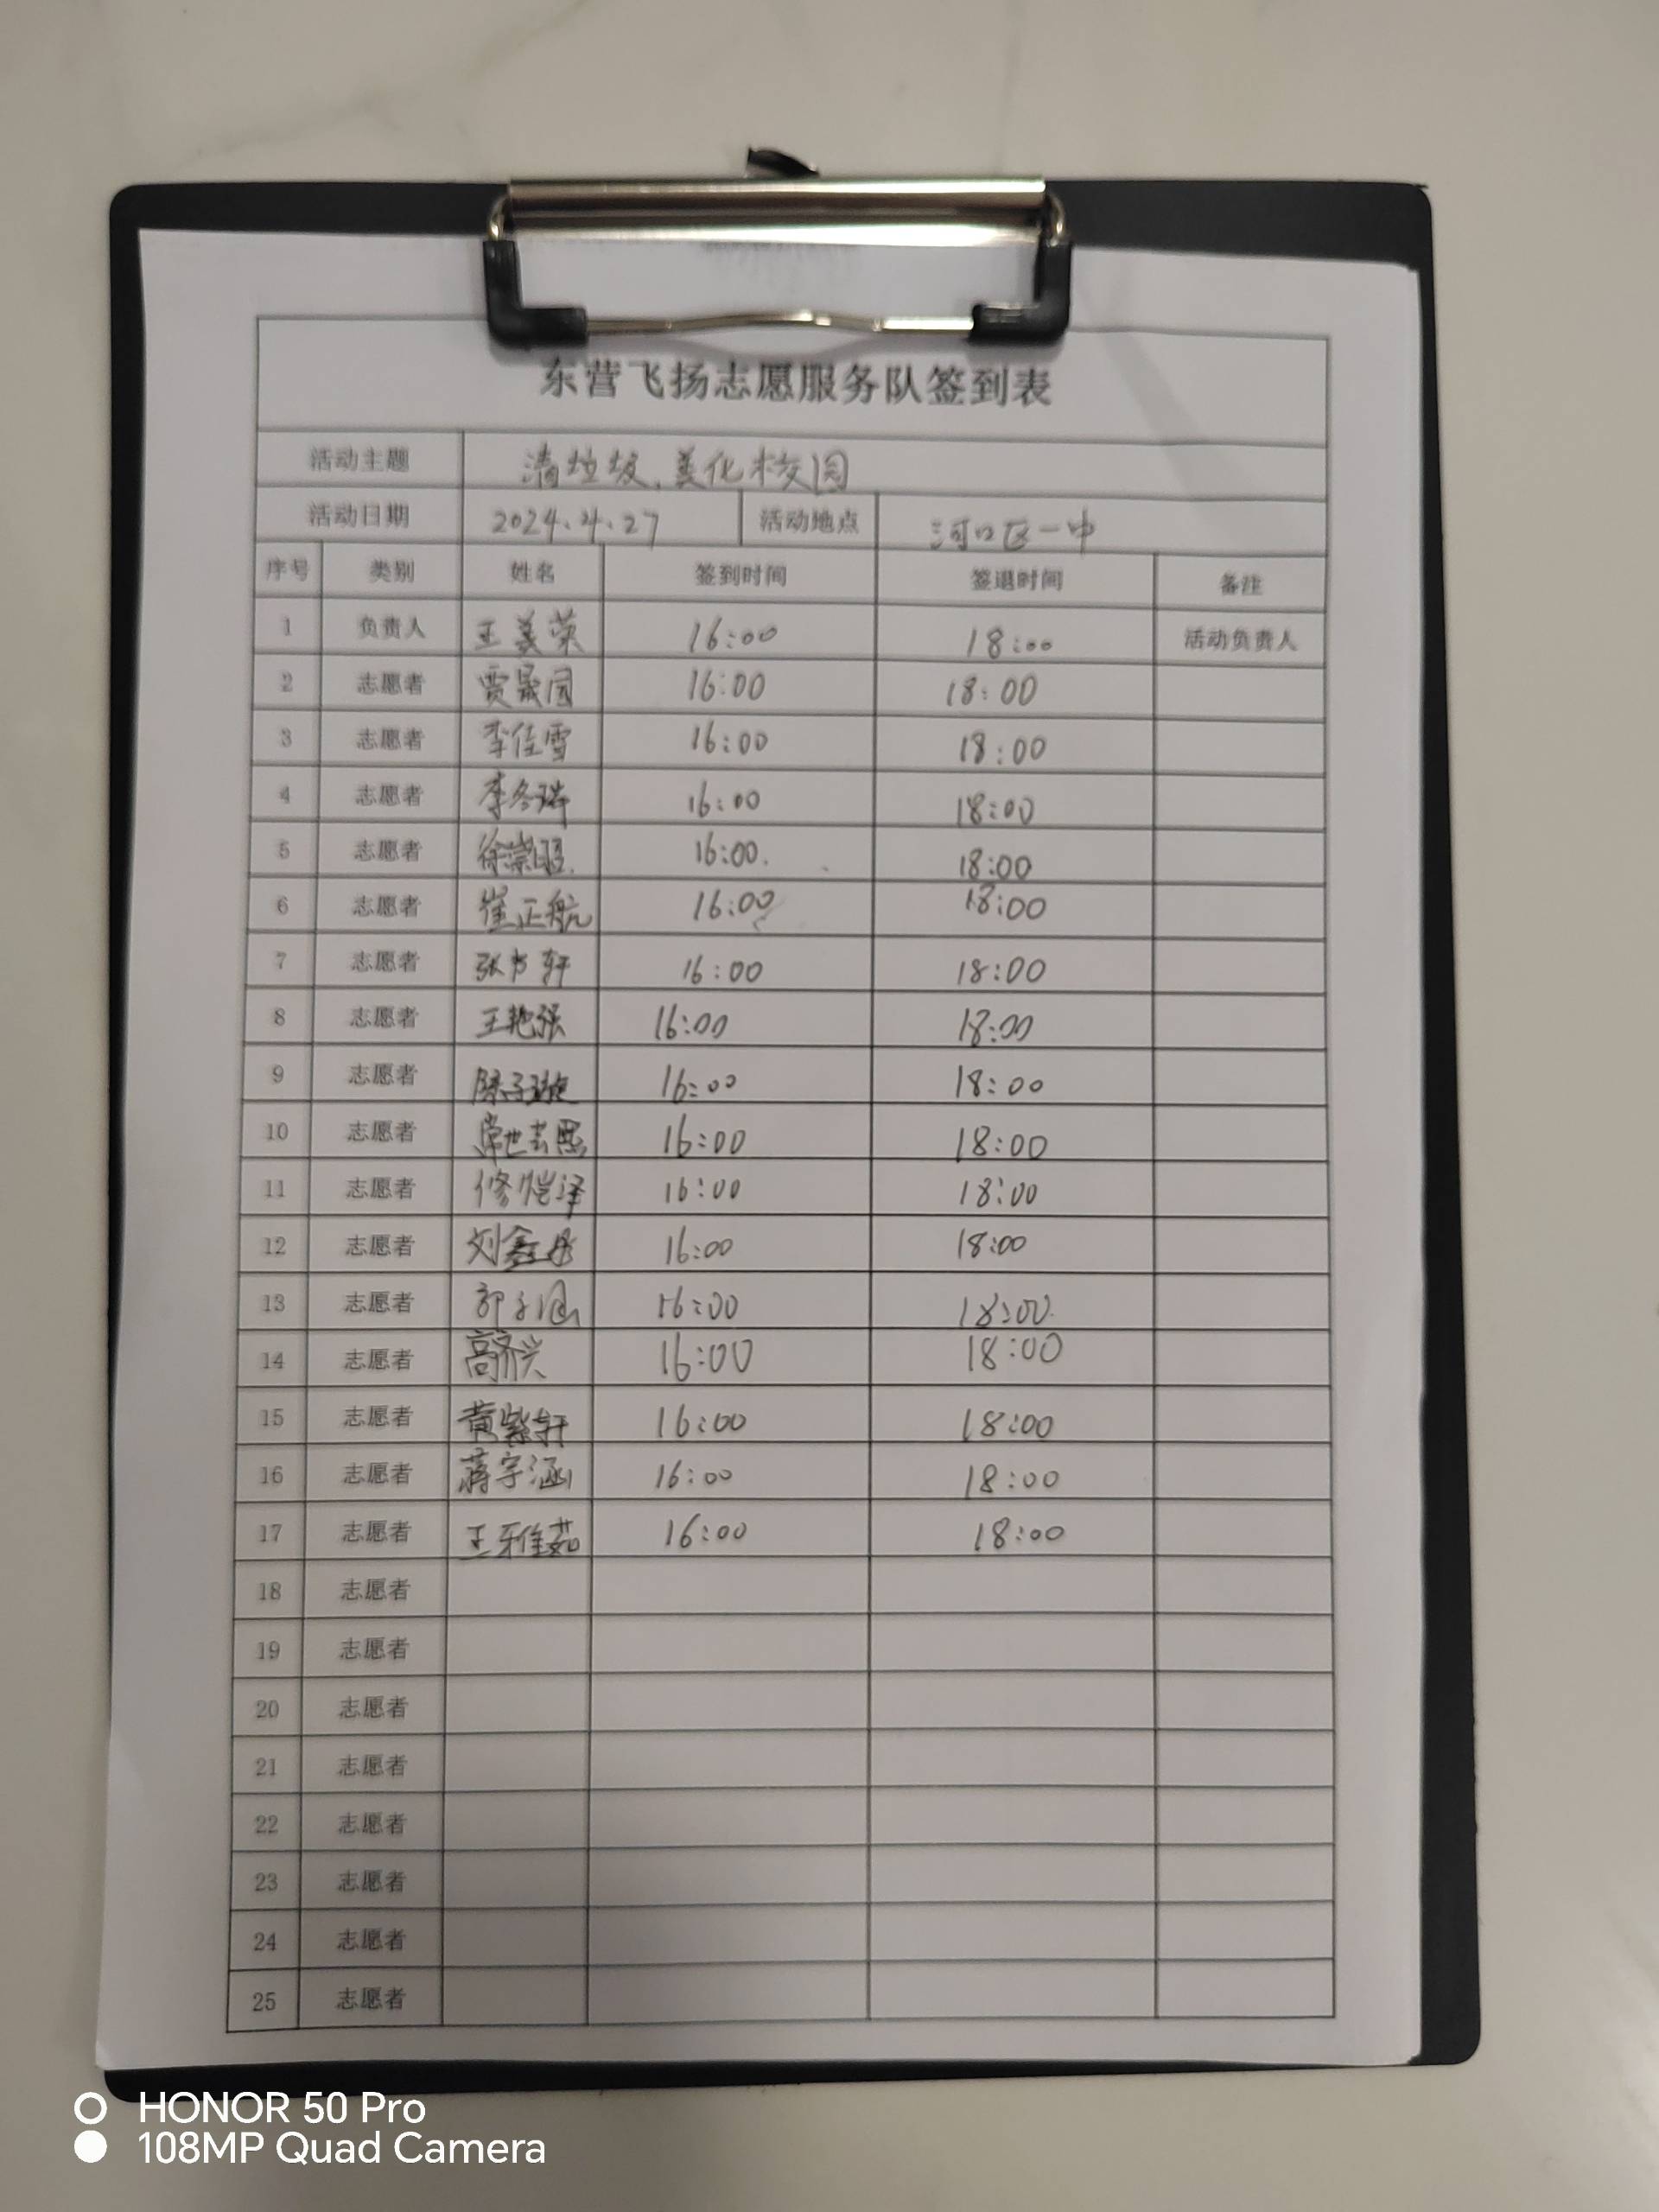 东营飞扬志愿服务队签到表
活动主题 清垃圾、美化校园
活动日期 2024、4、27 活动地点 河口区一中
序号 类别 姓名 签到时间 签退时间 备注
1 负责人 王美荣 16:00 18:00 活动负责人
2 志愿者 贾晟园 16:00 18:00
3 志愿者 李佳雪 16:00 18:00
4 志愿者 李冬瑞 16:00 18:00
5 志愿者 徐崇 16:00 18:00
6 志愿者 崔正航 16:00 18:00
7 志愿者 张书轩 16:00 18:00
8 志愿者 王艳强 16:00 18:00
9 志愿者 陈子璇 16:00 18:00
10 志愿者 常世芸 16:00 18:00
11 志愿者 修恺泽 16:00 18:00
12 志愿者 刘鑫 16:00 18:00
13 志愿者 郭子涵 16:00 18:00
14 志愿者 高齐兴 16:00 18:00
15 志愿者 黄紫轩 16:00 18:00
16 志愿者 蒋宇涵 16:00 18:00
17 志愿者 王雅茹 16:00 18:00
18 志愿者
19 志愿者
20 志愿者
21 志愿者
22 志愿者
23 志愿者
24 志愿者
25 志愿者
HONOR 50 Pro
108MP Quad Camera